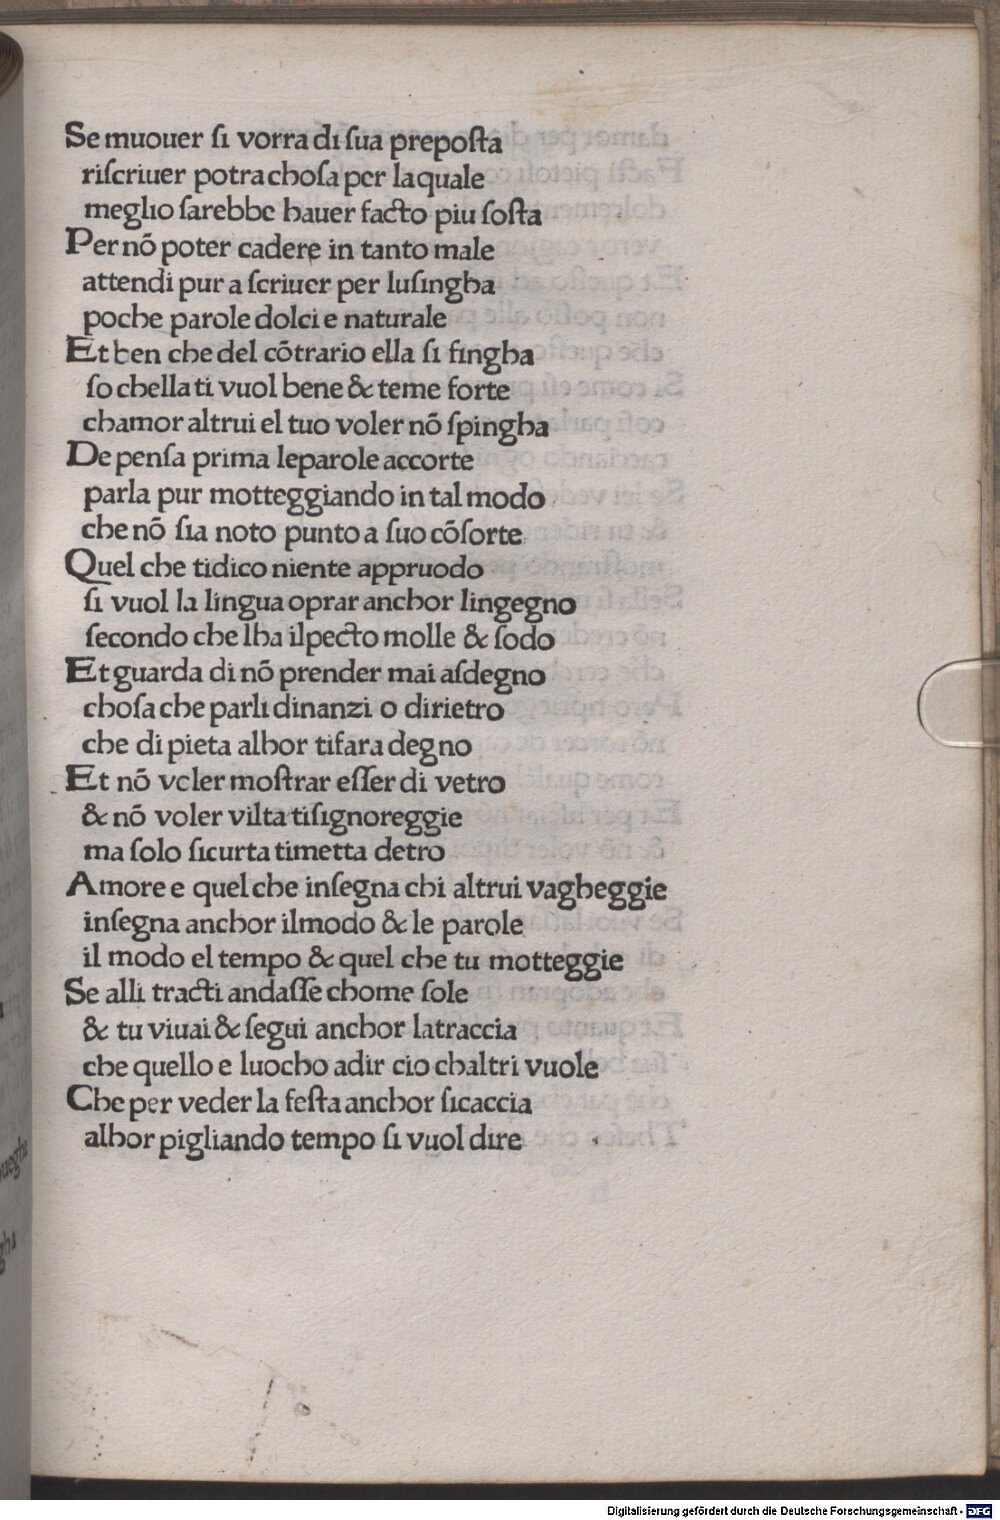 Se muouer ſi vorra di ſua prepoſta
riſcriuer potra choſa per laquale
meglio ſarebbe hauer facto piu ſoſta
Per nõ poter cadere in tanto male
attendi pur a ſcriuer per luſingha
poche parole dolci e naturale
Et ben che del cõtrario ella ſi fingha
ſo chella ti vuol bene & teme forte
chamor altrui el tuo voler nõ ſpingha
De penſa prima leparole accorte
parla pur motteggiando in tal modo
che nõ ſia noto punto a ſuo cõſorte
Quel che tidico niente appruodo
ſi vuol la lingua oprar anchor lingegno
ſecondo che lha ilpecto molle & ſodo
Et guarda di nõ prender mai aſdegno
choſa che parli dinanzi o dirietro
che di pieta alhor tifara degno
Et nõ voler moſtrar eſſer di vetro
& nõ voler vilta tiſignoreggie
ma ſolo ſicurta timetta detro
Amore e quel che inſegna chi altrui vagheggie
inſegna anchor ilmodo & le parole
il modo el tempo & quel che tu motteggie
Se alli tracti andaſſe chome ſole
& tu viuai & ſegui anchor latraccia
che quello e luocho adir cio chaltri vuole
Che per veder la feſta anchor ſicaccia
alhor pigliando tempo ſi vuol dire
Digitalisierung gefördert durch die Deutsche Forschungsgemeinschaft - DFG